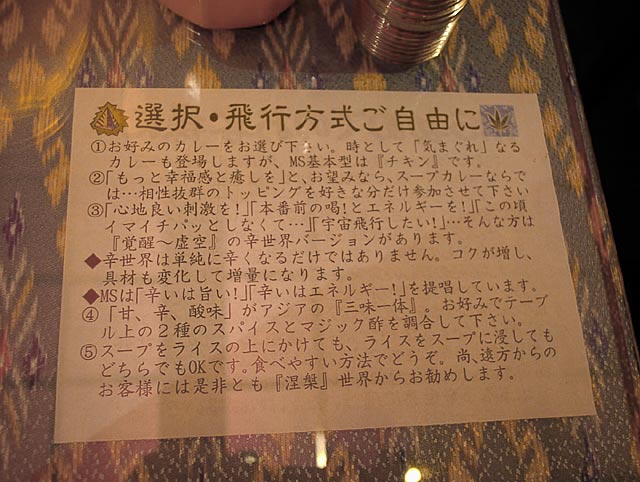 選択・飛行方式ご自由に
①お好みのカレーをお選び下さい。時として「気まぐれ」なる
カレーも登場しますが、MS基本型は『チキン』です。
②「もっと幸福感と癒しを」と、お望みなら、スープカレーならで
は…相性抜群のトッピングを好きな分だけ参加させて下さい
③「心地良い刺激を!」「本番前の喝!とエネルギーを!」「この頃
イマイチパッとしなくて…」「宇宙飛行したい!」…そんな方は
『覚醒〜虚空』の辛世界バージョンがあります。
◆辛世界は単純に辛くなるだけではありません。コクが増し、
具材も変化して増量になります。
◆MSは「辛いは旨い!」「辛いはエネルギー!」を提唱しています。
④「甘、辛、酸味」がアジアの『三味一体』。お好みでテーブ
ル上の2種のスパイスとマジック酢を調合して下さい。
⑤スープをライスの上にかけても、ライスをスープに浸しても
どちらでもOKです。食べやすい方法でどうぞ。尚、遠方からの
お客様には是非とも『涅槃』世界からお勧めします。